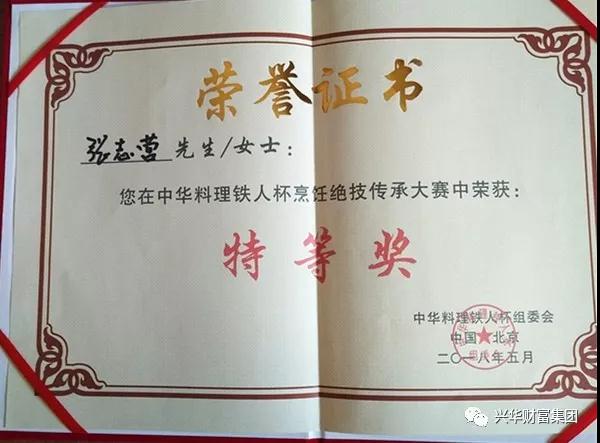 荣誉证书
张志营 先生/女士：
您在中华料理铁人杯烹饪绝技传承大赛中荣获：
特等奖
中华料理铁人杯组委会
中国·北京
二〇一八年五月
兴华财富集团